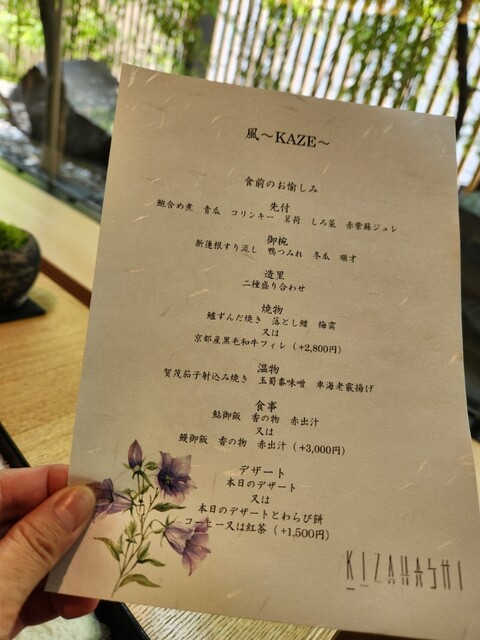 風〜KAZE〜
食前のお愉しみ
先付
鮑含め煮 青瓜 コリンキー 茗荷 しろ菜 赤紫蘇ジュレ
御椀
新蓮根すり流し 鴨つみれ 冬瓜 順才
造里
二種盛り合わせ
焼物
鱧ずんだ焼き 落とし鱧 梅雲
又は
京都産黒毛和牛フィレ（+2,800円）
温物
賀茂茄子射込み焼き 玉蜀黍味噌 車海老霰揚げ
食事
鮎御飯 香の物 赤出汁
又は
鰻御飯 香の物 赤出汁（+3,000円）
デザート
本日のデザート
又は
本日のデザートとわらび餅
コーヒー又は紅茶（+1,500円）
KIZAHASHI